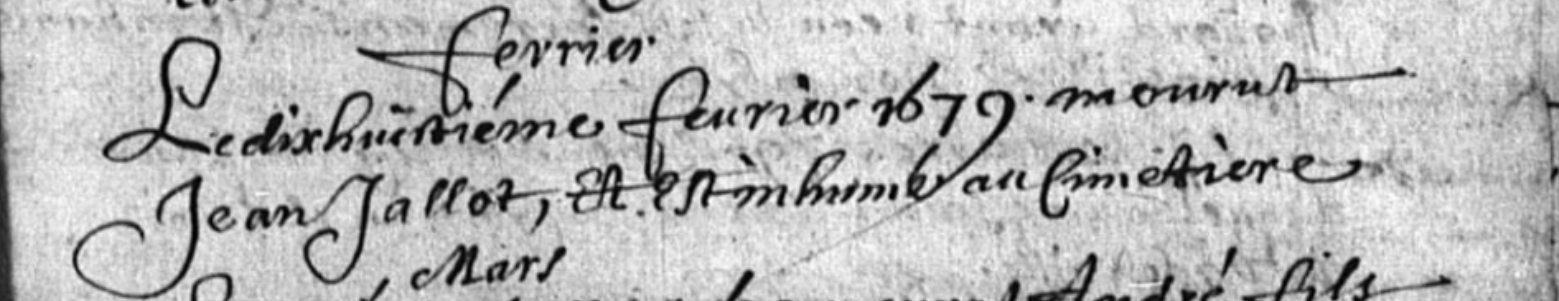 fevrier
Le dixhuictiéme feurier 1679. mourut
Jean Jallot, Et est inhumé au Cimetiere
Mars
André fils